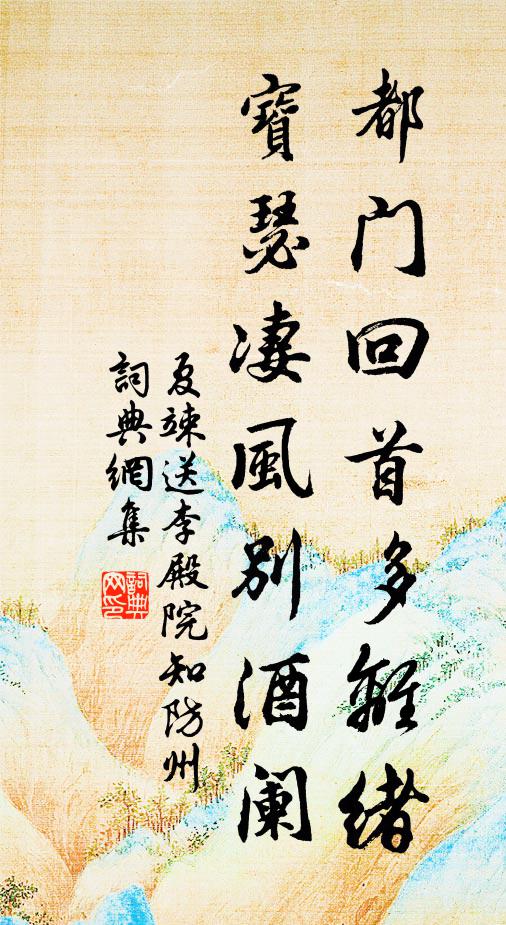 都门回首多離緒
寶瑟凄風別酒阑
夏竦送李殿院知防州
詞典網集
詞典网印